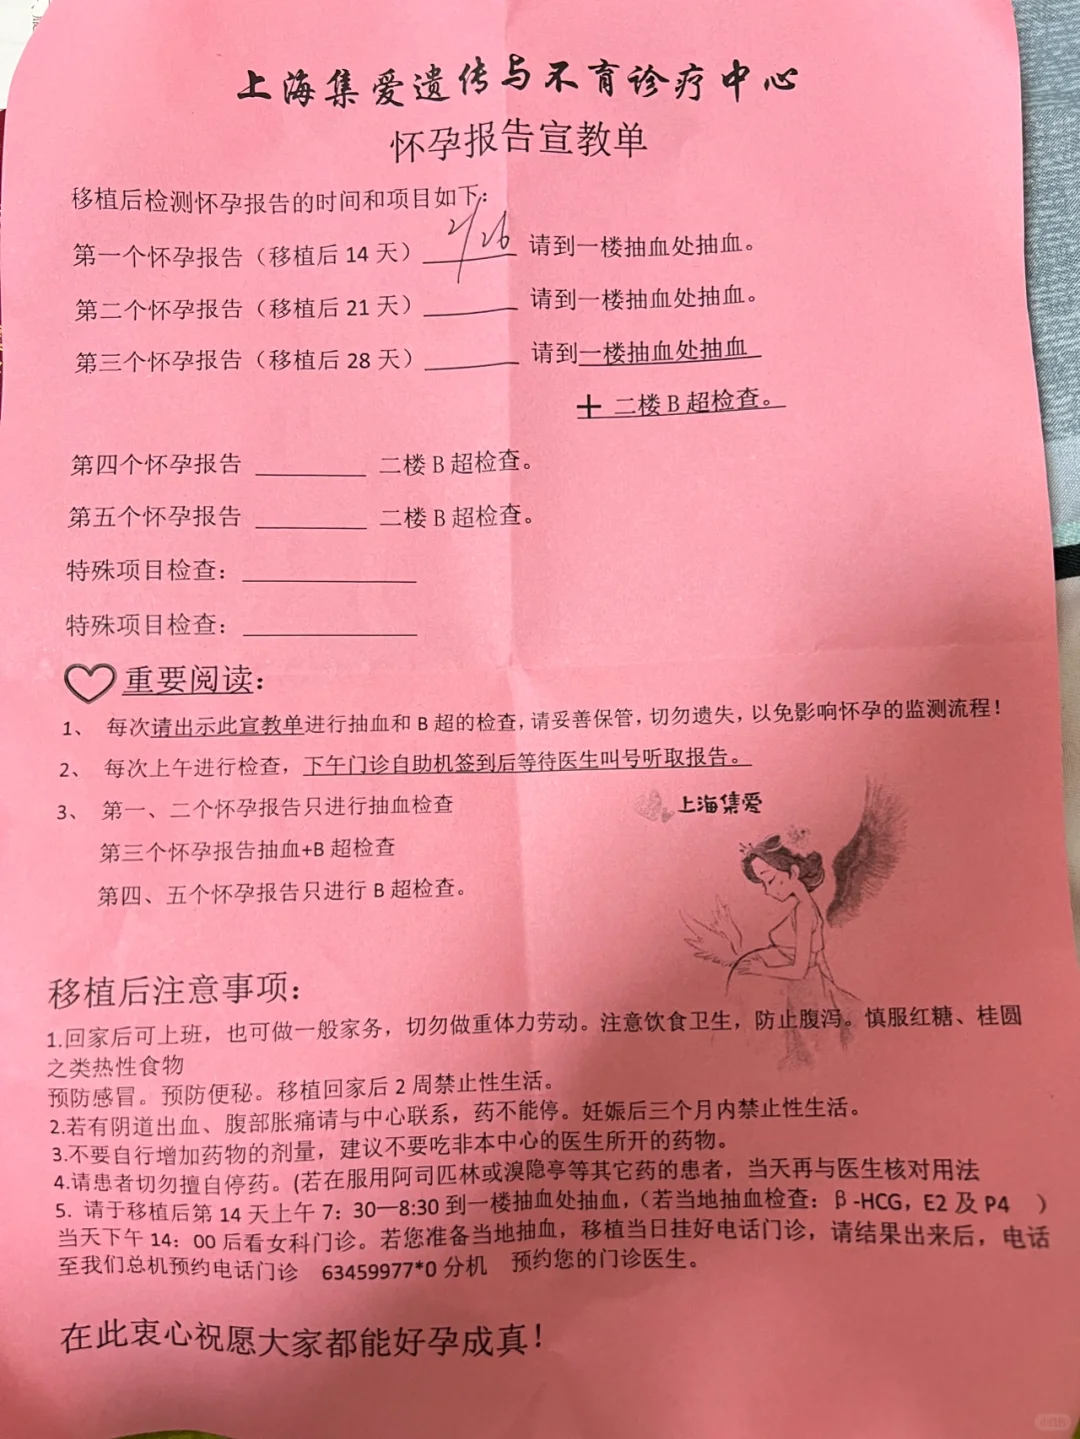 上海集爱遗传与不育诊疗中心
怀孕报告宣教单
移植后检测怀孕报告的时间和项目如下：
第一个怀孕报告（移植后 14 天） 2/26 请到一楼抽血处抽血。
第二个怀孕报告（移植后 21 天）______ 请到一楼抽血处抽血。
第三个怀孕报告（移植后 28 天）______ 请到一楼抽血处抽血
＋ 二楼 B 超检查。
第四个怀孕报告 ______ 二楼 B 超检查。
第五个怀孕报告 ______ 二楼 B 超检查。
特殊项目检查：______
特殊项目检查：______
重要阅读：
1、 每次请出示此宣教单进行抽血和 B 超的检查，请妥善保管，切勿遗失，以免影响怀孕的监测流程！
2、 每次上午进行检查，下午门诊自助机签到后等待医生叫号听取报告。
3、 第一、二个怀孕报告只进行抽血检查
上海集爱
第三个怀孕报告抽血+B 超检查
第四、五个怀孕报告只进行 B 超检查。
移植后注意事项：
1.回家后可上班，也可做一般家务，切勿做重体力劳动。注意饮食卫生，防止腹泻。慎服红糖、桂圆
之类热性食物
预防感冒。预防便秘。移植回家后 2 周禁止性生活。
2.若有阴道出血、腹部胀痛请与中心联系，药不能停。妊娠后三个月内禁止性生活。
3.不要自行增加药物的剂量，建议不要吃非本中心的医生所开的药物。
4.请患者切勿擅自停药。(若在服用阿司匹林或溴隐亭等其它药的患者，当天再与医生核对用法
5. 请于移植后第 14 天上午 7：30—8:30 到一楼抽血处抽血，（若当地抽血检查：β-HCG，E2 及 P4 ）
当天下午 14：00 后看女科门诊。若您准备当地抽血，移植当日挂好电话门诊，请结果出来后，电话
至我们总机预约电话门诊 63459977*0 分机 预约您的门诊医生。
在此衷心祝愿大家都能好孕成真！
小红书